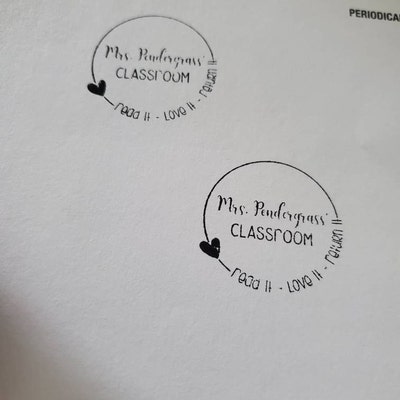 PERIODICA
Mrs. Pendergrass'
CLASSROOM
read it - Love it - return it
Mrs. Pendergrass'
CLASSROOM
read it - Love it - return it